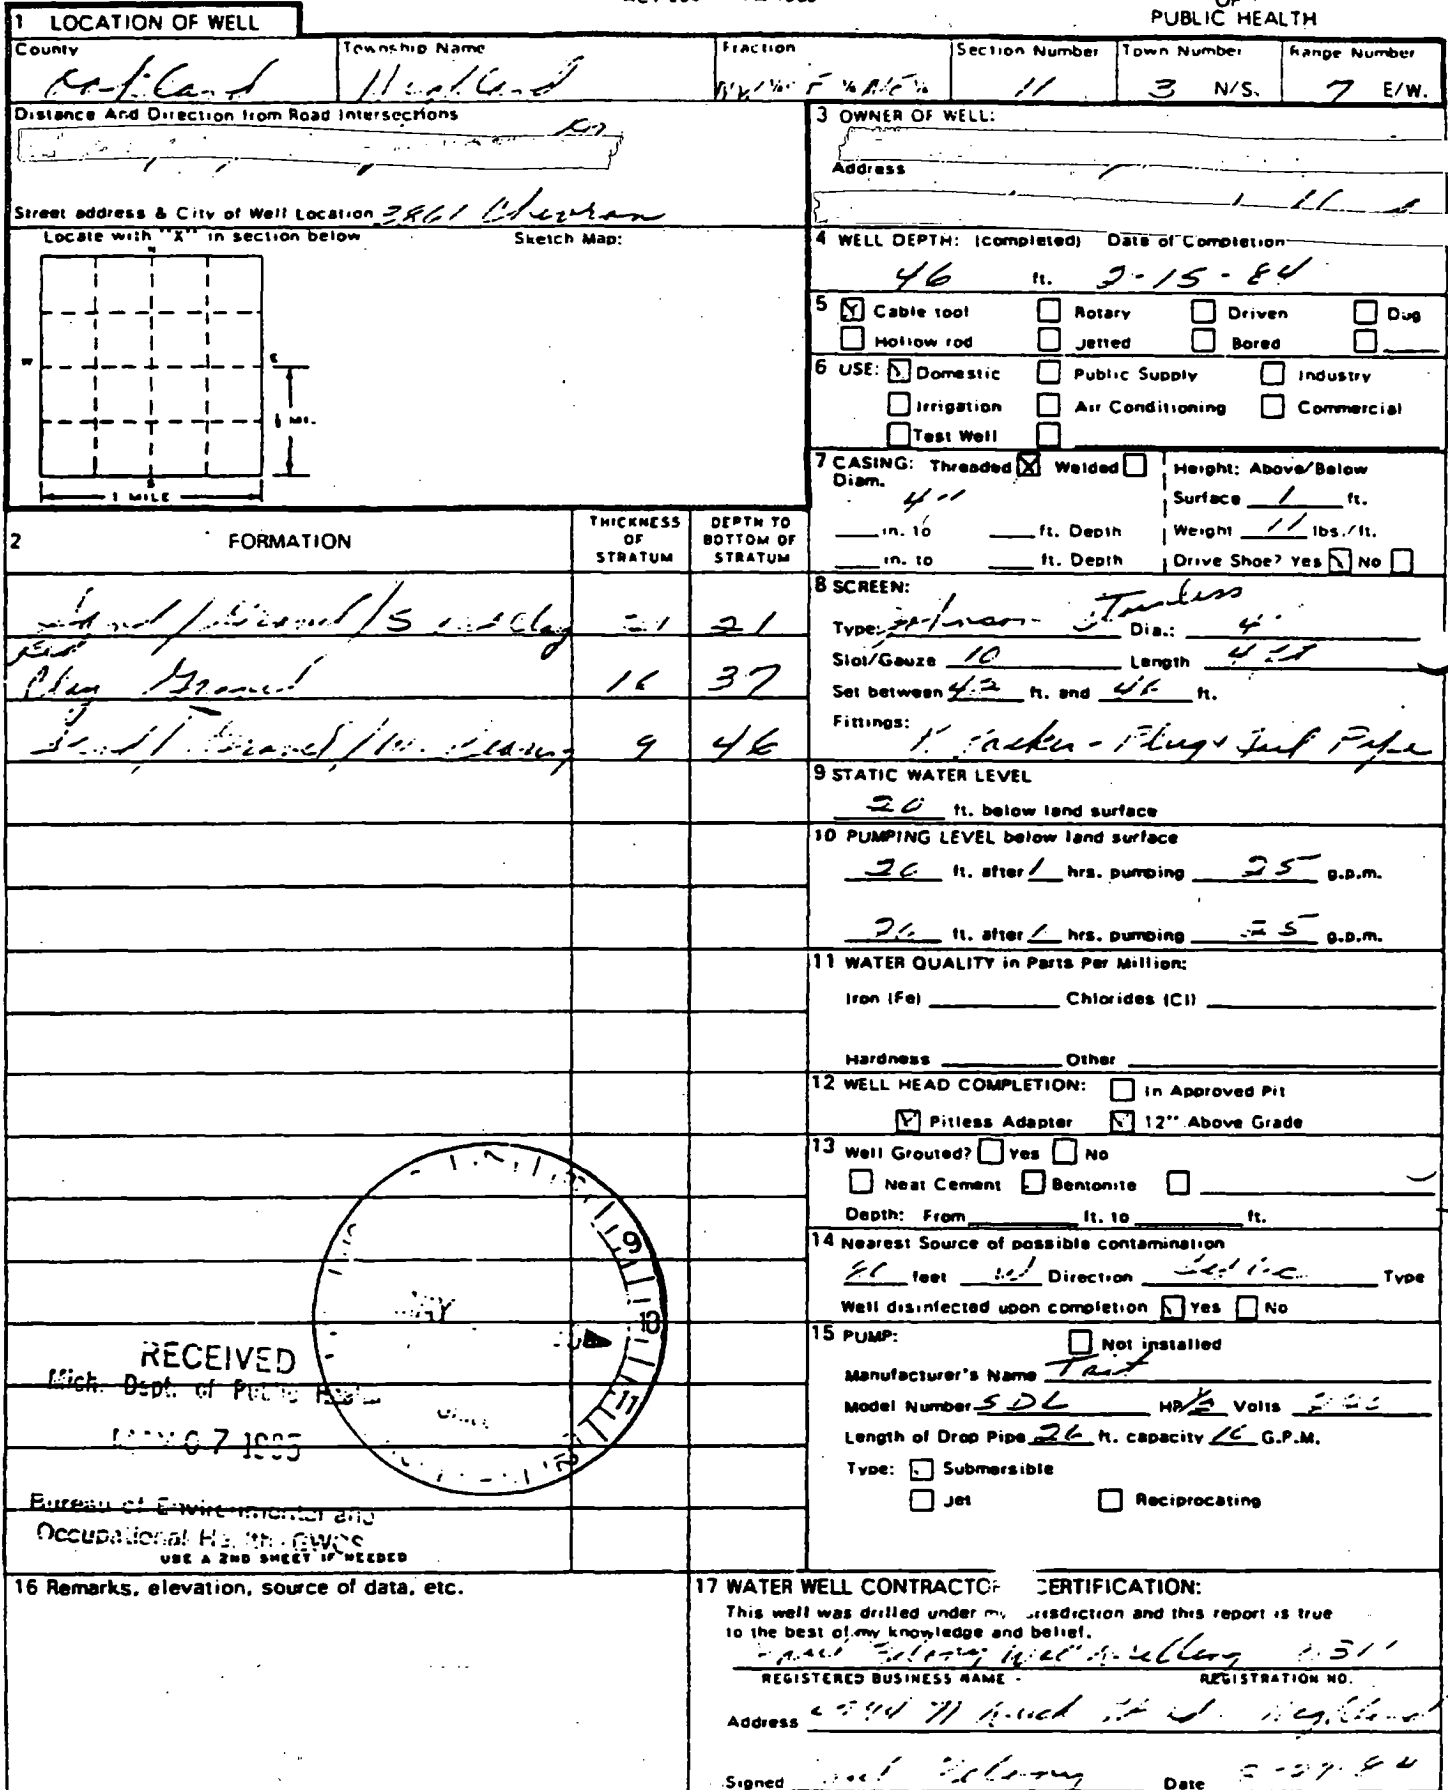 PUBLIC HEALTH
1 LOCATION OF WELL
County Township Name Fraction Section Number Town Number Range Number
Oakland Highland 11 3 N/S. 7 E/W.
Distance And Direction from Road Intersections
3 OWNER OF WELL:
Address
Street address & City of Well Location 3861 Chevron
Locate with "X" in section below Sketch Map:
N
W
E
S
MI.
1 MILE
4 WELL DEPTH: (completed) Date of Completion
46 ft. 2-15-84
5 Cable tool Rotary Driven Dug
Hollow rod Jetted Bored
6 USE: Domestic Public Supply Industry
Irrigation Air Conditioning Commercial
Test Well
7 CASING: Threaded Welded Height: Above/Below
Diam.
4" Surface 1 ft.
in. to ft. Depth Weight 11 lbs./ft.
in. to ft. Depth Drive Shoe? Yes No
2 FORMATION THICKNESS OF STRATUM DEPTH TO BOTTOM OF STRATUM
Sand/Gravel/S and Clay 21 21
Clay Gravel 16 37
Sand/Gravel/W. Bearing 9 46
8 SCREEN:
Type: Johnson Stainless Dia.: 4"
Slot/Gauze 10 Length 4 ft
Set between 42 ft. and 46 ft.
Fittings:
K Packer - Plug & Tail Pipe
9 STATIC WATER LEVEL
20 ft. below land surface
10 PUMPING LEVEL below land surface
26 ft. after 1 hrs. pumping 25 g.p.m.
26 ft. after 1 hrs. pumping 25 g.p.m.
11 WATER QUALITY in Parts Per Million:
Iron (Fe) Chlorides (Cl)
Hardness Other
12 WELL HEAD COMPLETION: In Approved Pit
Pitless Adapter 12" Above Grade
13 Well Grouted? Yes No
Neat Cement Bentonite
Depth: From ft. to ft.
14 Nearest Source of possible contamination
feet W Direction Septic Type
Well disinfected upon completion Yes No
15 PUMP: Not installed
Manufacturer's Name
Model Number SDL HP 1/2 Volts
Length of Drop Pipe 26 ft. capacity G.P.M.
Type: Submersible
Jet Reciprocating
9
10
11
RECEIVED
Mich. Dept. of Public Health
MAY 07 1985
Bureau of Environmental and
Occupational Health GWQS
USE A 2ND SHEET IF NEEDED
16 Remarks, elevation, source of data, etc.
17 WATER WELL CONTRACTOR CERTIFICATION:
This well was drilled under my jurisdiction and this report is true
to the best of my knowledge and belief.
Well Drilling
REGISTERED BUSINESS NAME REGISTRATION NO.
Address Highland
Signed Date